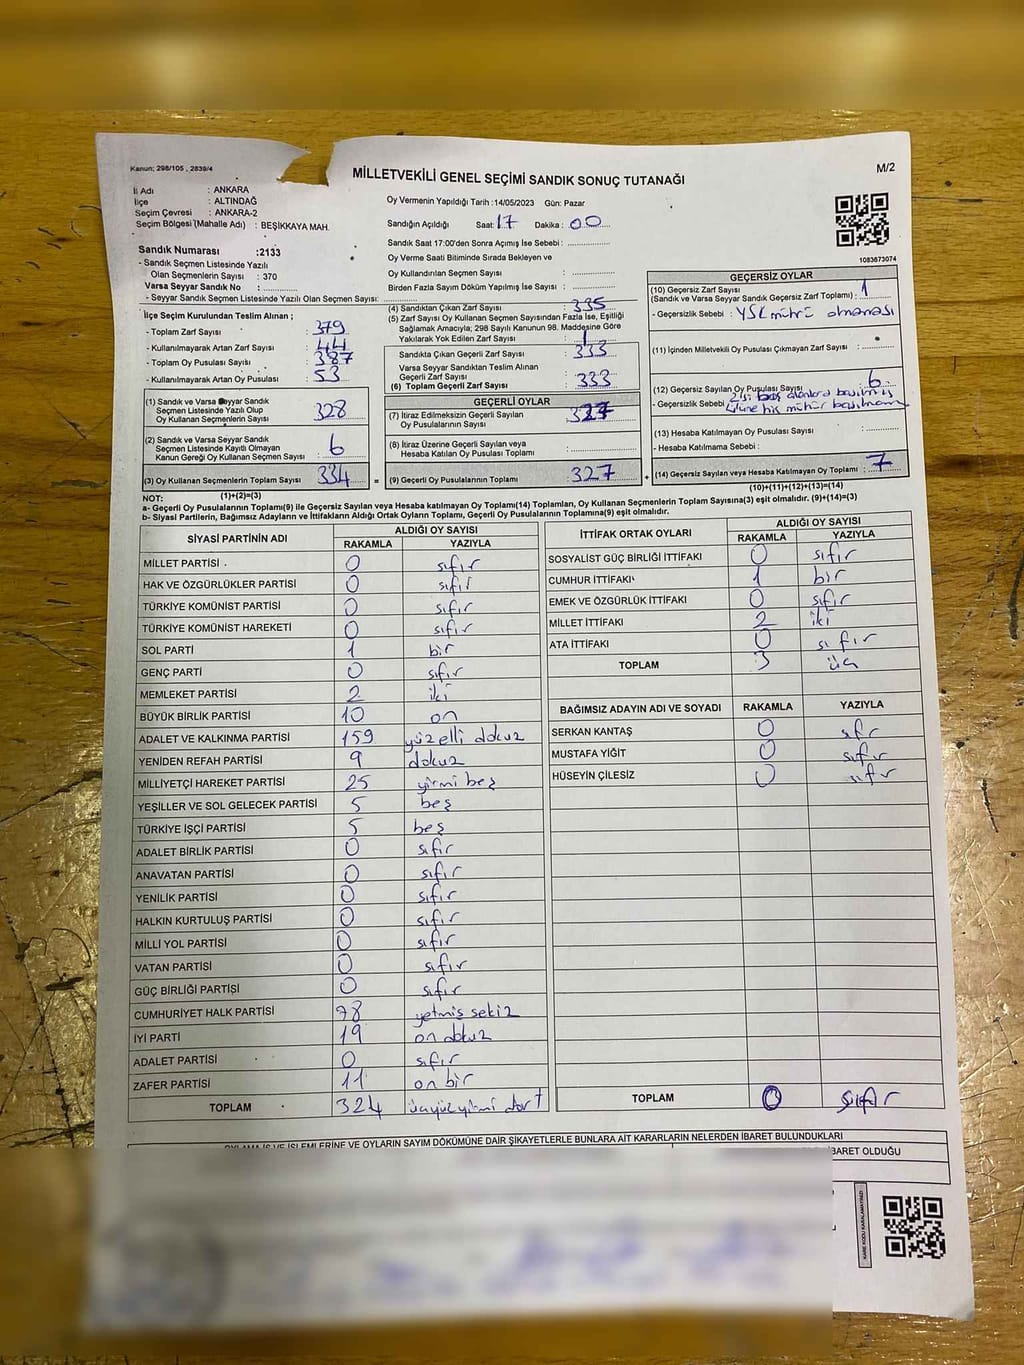 Kanun; 298/105 , 2839/4
M/2
MİLLETVEKİLİ GENEL SEÇİMİ SANDIK SONUÇ TUTANAĞI
İl Adı : ANKARA
İlçe : ALTINDAĞ
Seçim Çevresi : ANKARA-2
Seçim Bölgesi (Mahalle Adı) : BEŞİKKAYA MAH.
Sandık Numarası :2133
- Sandık Seçmen Listesinde Yazılı
Olan Seçmenlerin Sayısı : 370
Varsa Seyyar Sandık No :
- Seyyar Sandık Seçmen Listesinde Yazılı Olan Seçmen Sayısı:
Oy Vermenin Yapıldığı Tarih :14/05/2023 Gün: Pazar
Sandığın Açıldığı Saat: 17 Dakika : 00
Sandık Saat 17:00'den Sonra Açımış İse Sebebi :
Oy Verme Saati Bitiminde Sırada Bekleyen ve
Oy Kullandırılan Seçmen Sayısı :
Birden Fazla Sayım Döküm Yapılmış İse Sayısı :
1083673074
İlçe Seçim Kurulundan Teslim Alınan ;
- Toplam Zarf Sayısı : 379
- Kullanılmayarak Artan Zarf Sayısı : 44
- Toplam Oy Pusulası Sayısı : 387
- Kullanılmayarak Artan Oy Pusulası : 53
(1) Sandık ve Varsa Seyyar Sandık
Seçmen Listesinde Yazılı Olup
Oy Kullanan Seçmenlerin Sayısı : 328
(2) Sandık ve Varsa Seyyar Sandık
Seçmen Listesinde Kayıtlı Olmayan
Kanun Gereği Oy Kullanan Seçmen Sayısı : 6
(3) Oy Kullanan Seçmenlerin Toplam Sayısı : 334 =
(1)+(2)=(3)
(4) Sandıktan Çıkan Zarf Sayısı : 335
(5) Zarf Sayısı Oy Kullanan Seçmen Sayısından Fazla İse, Eşitliği
Sağlamak Amacıyla; 298 Sayılı Kanunun 98. Maddesine Göre
Yakılarak Yok Edilen Zarf Sayısı : 1
Sandıkta Çıkan Geçerli Zarf Sayısı : 333
Varsa Seyyar Sandıktan Teslim Alınan
Geçerli Zarf Sayısı :
(6) Toplam Geçerli Zarf Sayısı : 333
GEÇERLİ OYLAR
(7) İtiraz Edilmeksizin Geçerli Sayılan
Oy Pusulalarının Sayısı : 327
(8) İtiraz Üzerine Geçerli Sayılan veya
Hesaba Katılan Oy Pusulası Toplamı :
(9) Geçerli Oy Pusulalarının Toplamı : 327 +
GEÇERSİZ OYLAR
(10) Geçersiz Zarf Sayısı
(Sandık ve Varsa Seyyar Sandık Geçersiz Zarf Toplamı) : 1
- Geçersizlik Sebebi : YSK mührü olmaması
(11) İçinden Milletvekili Oy Pusulası Çıkmayan Zarf Sayısı :
(12) Geçersiz Sayılan Oy Pusulası Sayısı : 6
- Geçersizlik Sebebi
(13) Hesaba Katılmayan Oy Pusulası Sayısı :
- Hesaba Katılmama Sebebi :
(14) Geçersiz Sayılan veya Hesaba Katılmayan Oy Toplamı : 7
(10)+(11)+(12)+(13)=(14)
NOT:
a- Geçerli Oy Pusulalarının Toplamı(9) ile Geçersiz Sayılan veya Hesaba Katılmayan Oy Toplamı(14) Toplamları, Oy Kullanan Seçmenlerin Toplam Sayısına(3) eşit olmalıdır. (9)+(14)=(3)
b- Siyasi Partilerin, Bağımsız Adayların ve İttifakların Aldığı Ortak Oyların Toplamı, Geçerli Oy Pusulalarının Toplamına(9) eşit olmalıdır.
SİYASİ PARTİNİN ADI ALDIĞI OY SAYISI
RAKAMLA YAZIYLA
MİLLET PARTİSİ 0 sıfır
HAK VE ÖZGÜRLÜKLER PARTİSİ 0 sıfır
TÜRKİYE KOMÜNİST PARTİSİ 0 sıfır
TÜRKİYE KOMÜNİST HAREKETİ 0 sıfır
SOL PARTİ 1 bir
GENÇ PARTİ 0 sıfır
MEMLEKET PARTİSİ 2 iki
BÜYÜK BİRLİK PARTİSİ 10 on
ADALET VE KALKINMA PARTİSİ 159 yüzelli dokuz
YENİDEN REFAH PARTİSİ 9 dokuz
MİLLİYETÇİ HAREKET PARTİSİ 25 yirmi beş
YEŞİLLER VE SOL GELECEK PARTİSİ 5 beş
TÜRKİYE İŞÇİ PARTİSİ 5 beş
ADALET BİRLİK PARTİSİ 0 sıfır
ANAVATAN PARTİSİ 0 sıfır
YENİLİK PARTİSİ 0 sıfır
HALKIN KURTULUŞ PARTİSİ 0 sıfır
MİLLİ YOL PARTİSİ 0 sıfır
VATAN PARTİSİ 0 sıfır
GÜÇ BİRLİĞİ PARTİSİ 0 sıfır
CUMHURİYET HALK PARTİSİ 78 yetmiş sekiz
İYİ PARTİ 19 on dokuz
ADALET PARTİSİ 0 sıfır
ZAFER PARTİSİ 11 on bir
TOPLAM 324 üçyüzyirmi dört
İTTİFAK ORTAK OYLARI ALDIĞI OY SAYISI
RAKAMLA YAZIYLA
SOSYALİST GÜÇ BİRLİĞİ İTTİFAKI 0 sıfır
CUMHUR İTTİFAKI 1 bir
EMEK VE ÖZGÜRLÜK İTTİFAKI 0 sıfır
MİLLET İTTİFAKI 2 iki
ATA İTTİFAKI 0 sıfır
TOPLAM 3 üç
BAĞIMSIZ ADAYIN ADI VE SOYADI RAKAMLA YAZIYLA
SERKAN KANTAŞ 0 sıfr
MUSTAFA YİĞİT 0 sıfır
HÜSEYİN ÇİLESİZ 0 sıfr
TOPLAM 0 sıfır
OYLAMA İŞ VE İŞLEMLERİNE VE OYLARIN SAYIM DÖKÜMÜNE DAİR ŞİKAYETLERLE BUNLARA AİT KARARLARIN NELERDEN İBARET BULUNDUKLARI
İBARET OLDUĞU
KARE KODU KARALAMAYINIZ!